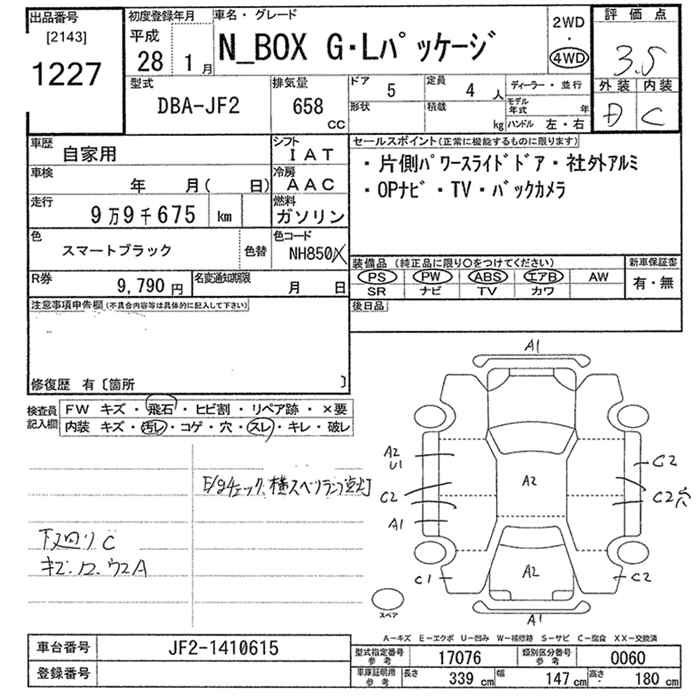 出品番号
[2143]
1227
初度登録年月
平成
28 1 月
車名・グレード
N_BOX G・Lパッケージ
2WD
・
4WD
評価点
3.5
外装 内装
D C
型式
DBA-JF2
排気量
658
CC
ドア 5
形状
定員 4 人
積載 kg
ディーラー・並行
モデル年式 年
ハンドル 左・右
車歴 自家用
シフト IAT
車検 年 月( 日)
冷房 AAC
走行 9万9千675 km
燃料 ガソリン
色 スマートブラック 色替
色コード NH850
R券 9,790 円
名変通知期限 月 日
セールスポイント(正常に機能するものに限ります)
・片側パワースライドドア・社外アルミ
・OPナビ・TV・バックカメラ
装備品(純正品に限り○をつけてください)
PS PW ABS エアB AW
SR ナビ TV カワ
新車保証書
有・無
後日品
注意事項申告欄(不具合内容等は具体的に記入して下さい)
修復歴 有〔箇所 〕
検査員記入欄
FW キズ・飛石・ヒビ割・リペア跡・×要
内装 キズ・汚レ・コゲ・穴・スレ・キレ・破レ
横スベリランプ点灯
下廻りC
A1
A2
U1
C2
A1
C1
A2
A2
C2
C2穴
C2
A1
スペア
A-キズ E-エクボ U-凹み W-補修跡 S-サビ C-腐食 XX-交換済
車台番号 JF2-1410615
登録番号
型式指定番号 参考 17076
類別区分番号 参考 0060
車庫証明用 参考 長さ 339 cm 幅 147 cm 高さ 180 cm